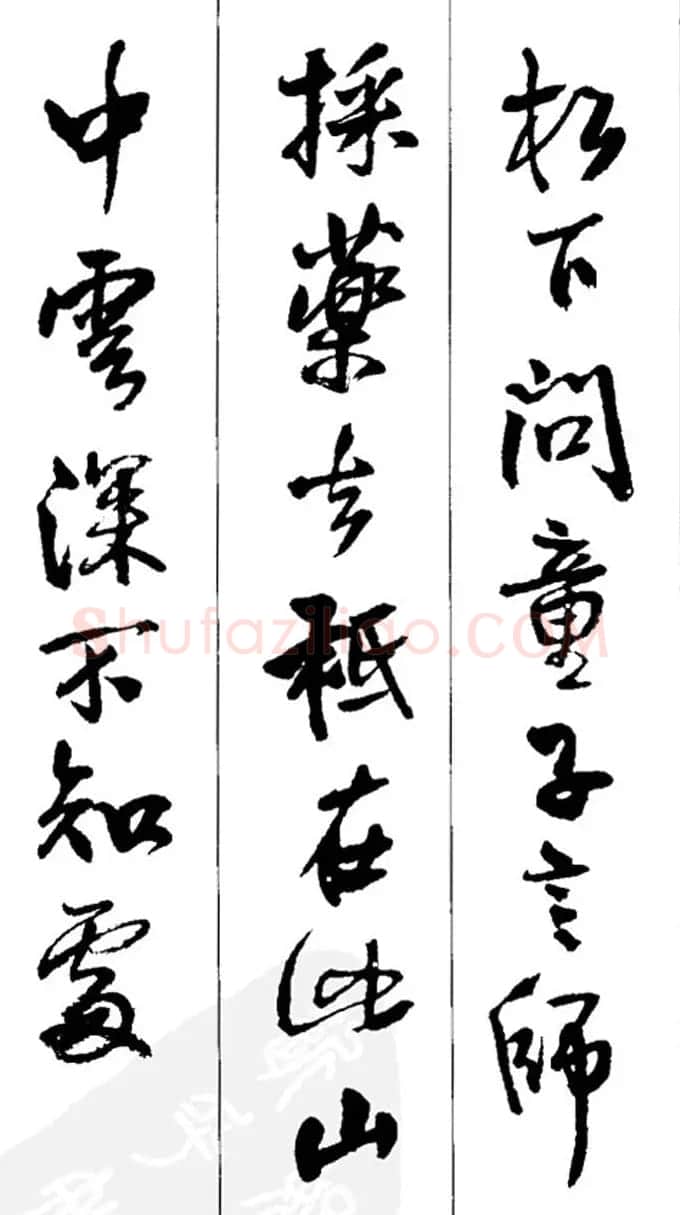 松下問童子言師
採藥去祗在此山
中雲深不知處
Shufaziliao.COM